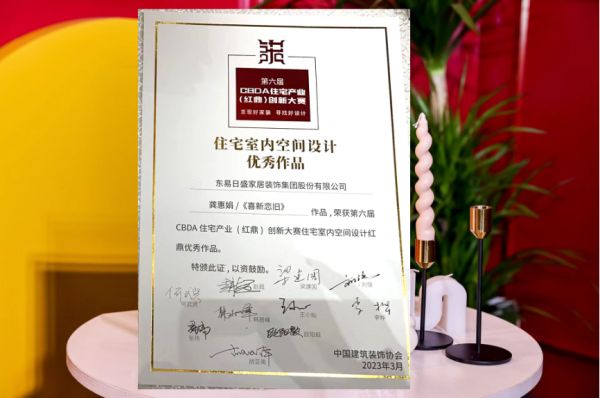 第六届
CBDA住宅产业
（红鼎）创新大赛
发现好家装 寻找好设计
住宅室内空间设计
优秀作品
东易日盛家居装饰集团股份有限公司
龚惠娟/《喜新恋旧》 作品，荣获第六届
CBDA 住宅产业（红鼎）创新大赛住宅室内空间设计红
鼎优秀作品。
特颁此证，以资鼓励。
中国建筑装饰协会
2023年3月